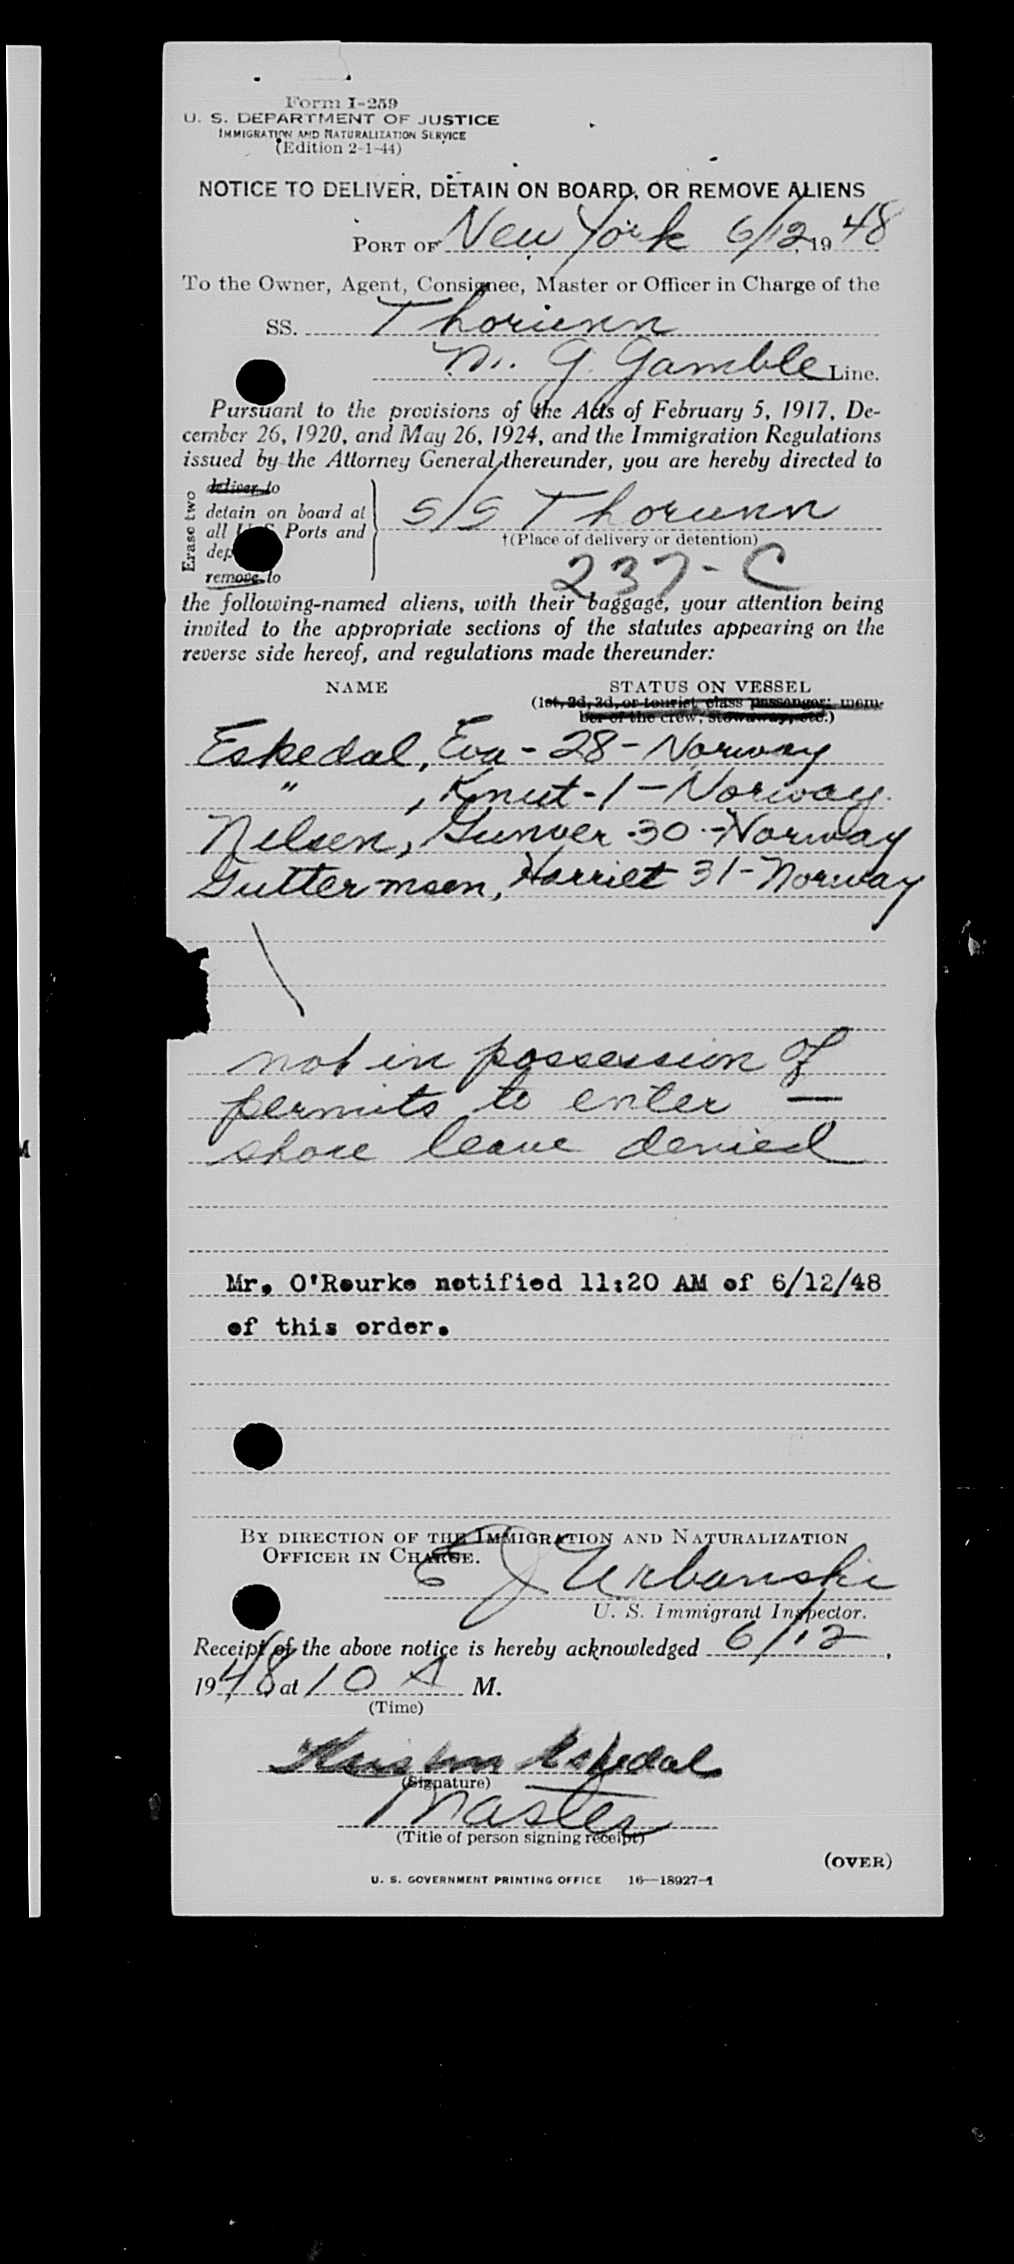 Form I-259
U. S. DEPARTMENT OF JUSTICE
IMMIGRATION AND NATURALIZATION SERVICE
(Edition 2-1-44)
NOTICE TO DELIVER, DETAIN ON BOARD, OR REMOVE ALIENS
PORT OF New York 6/12, 19 48
To the Owner, Agent, Consignee, Master or Officer in Charge of the
SS. Thorunn
M. G. Gamble Line.
Pursuant to the provisions of the Acts of February 5, 1917, De-
cember 26, 1920, and May 26, 1924, and the Immigration Regulations
issued by the Attorney General thereunder, you are hereby directed to
Erase two
deliver to
detain on board at
all U. S. Ports and
dep
remove to
S/S Thorunn
†(Place of delivery or detention)
237-C
the following-named aliens, with their baggage, your attention being
invited to the appropriate sections of the statutes appearing on the
reverse side hereof, and regulations made thereunder:
NAME STATUS ON VESSEL
(1st, 2d, 3d, or tourist class passenger; mem-
ber of the crew, stowaway, etc.)
Eskedal, Eva - 28 - Norway
" , Knut - 1 - Norway.
Nilsen, Gunver - 30 - Norway
Guttormsen, Harriet 31 - Norway
not in possession of
permits to enter —
shore leave denied
Mr. O'Rourke notified 11:20 AM of 6/12/48
of this order.
BY DIRECTION OF THE IMMIGRATION AND NATURALIZATION
OFFICER IN CHARGE.
E J Urbanski
U. S. Immigrant Inspector.
Receipt of the above notice is hereby acknowledged 6/12,
19 48, at 10 A M.
(Time)
Eskedal
(Signature)
Master
(Title of person signing receipt)
(OVER)
U. S. GOVERNMENT PRINTING OFFICE 16—18927-1